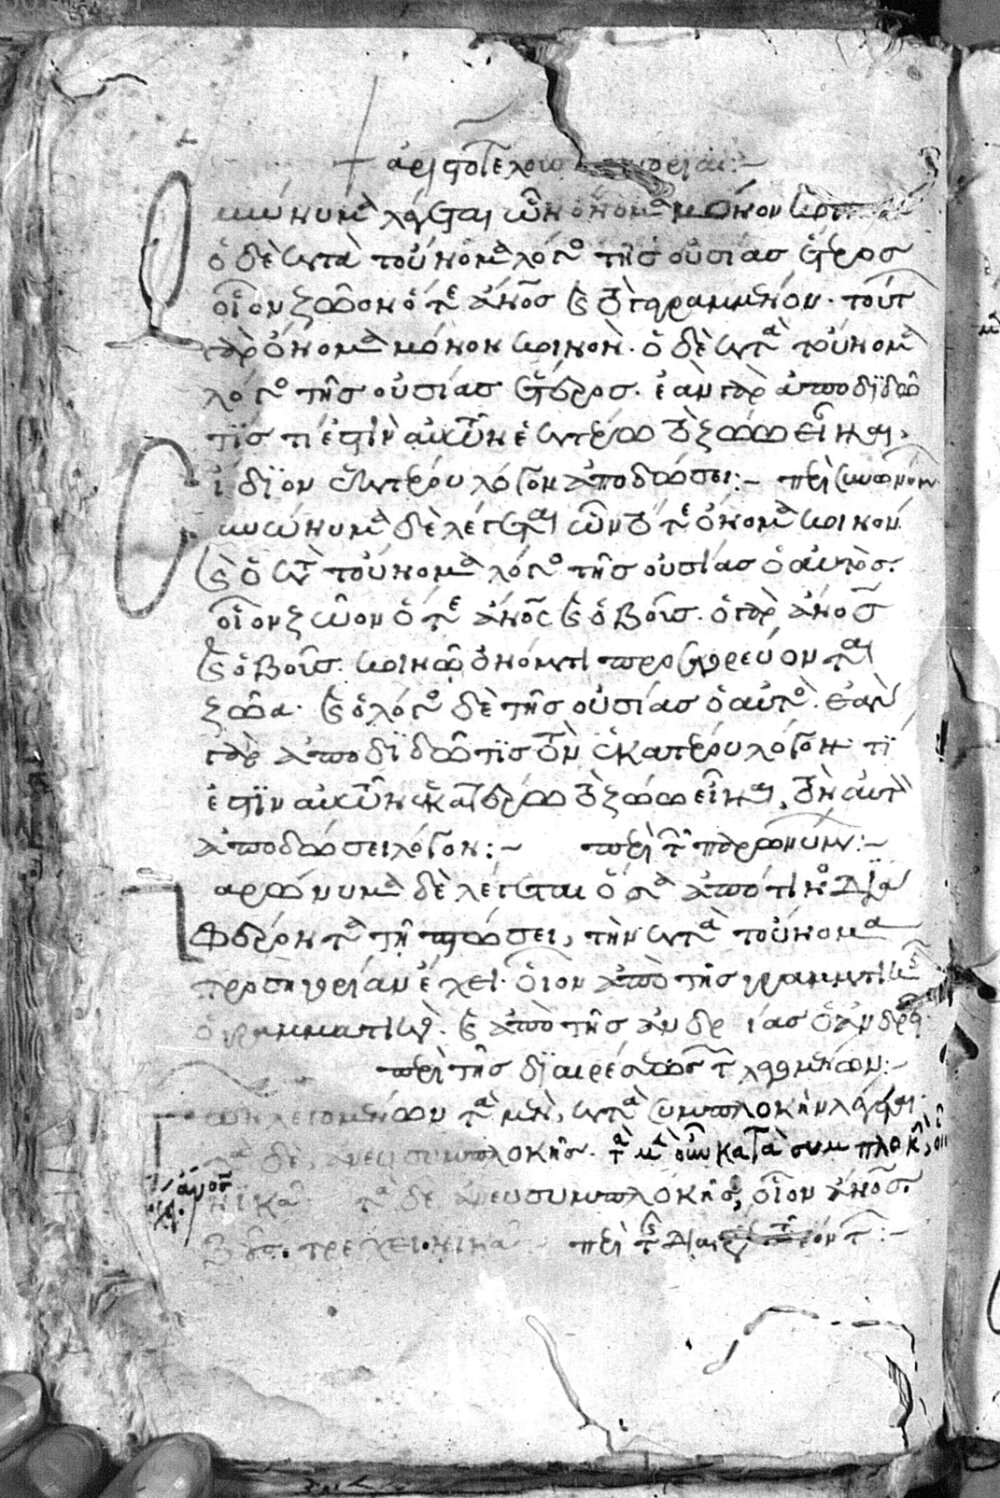 ἀριστοτέλους κατηγορίαι:-
Ὁμώνυμα λέγεται ὧν ὄνομα μόνον κοινὸν
ὁ δὲ κατὰ τοὔνομα λόγος τῆς οὐσίας ἕτερος
οἷον ζῶον ὅ τε ἄνος καὶ τὸ γεγραμμένον. τούτων
γὰρ ὄνομα μόνον κοινὸν. ὁ δὲ κατὰ τοὔνομα
λόγος τῆς οὐσίας ἕτερος. ἐὰν γὰρ ἀποδϊδῶ
τϊς τί ἐστὶν αὐτῶν ἑκατέρω τὸ ζώω εἶναι,
ἴδϊον ἑκατέρου λόγον ἀποδώσει:- περὶ συνωνύμων
Συνώνυμα δὲ λέγεται ὧν τό τε ὄνομα κοινὸν
καὶ ὁ κατὰ τοὔνομα λόγος τῆς οὐσίας ὁ αὐτὸς.
οἷον ζῶον ὅ τε ἄνος καὶ ὁ βοῦς. ὁ γὰρ ἄνος
καὶ ὁ βοῦς. κοινῶ ὀνόματι προσαγορεύονται
ζῶα. καὶ ὁ λόγος δὲ τῆς οὐσίας ὁ αὐτὸς. ἐὰν
γὰρ ἀποδϊδῶ τϊς τὸν ἑκατέρου λόγον τί
ἐστϊν αὐτῶν ἑκατέρω τὸ ζώω εἶναι, τὸν αὐτὸν
ἀποδώσει λόγον:- περὶ τῶν παρωνύμων:-
Παρώνυμα δὲ λέγεται ὅσα ἀπό τινος δια
φέροντα τῆ πτώσει, τὴν κατὰ τοὔνομα
προσηγορίαν ἔχει. οἷον ἀπὸ τῆς γραμματικῆς
ὁ γραμματικὸς. καὶ ἀπὸ τῆς ἀνδρίας ὁ ἀνδρεῖος.
περὶ τῆς δϊαιρέσεως τῶν λεγομένων:-
Τῶν λεγομένων τὰ μὲν, κατὰ συμπλοκὴν λέγεται.
τὰ δὲ, ἄνευ συμπλοκῆς. τὰ μὲν οὖν κατὰ συμπλοκὴν, οἷον
ἄνος
νϊκᾶ τὰ δὲ ἄνευ συμπλοκῆς, οἷον ἄνος.
βοῦς. τρέχει. νικᾶ:- περὶ τῶν